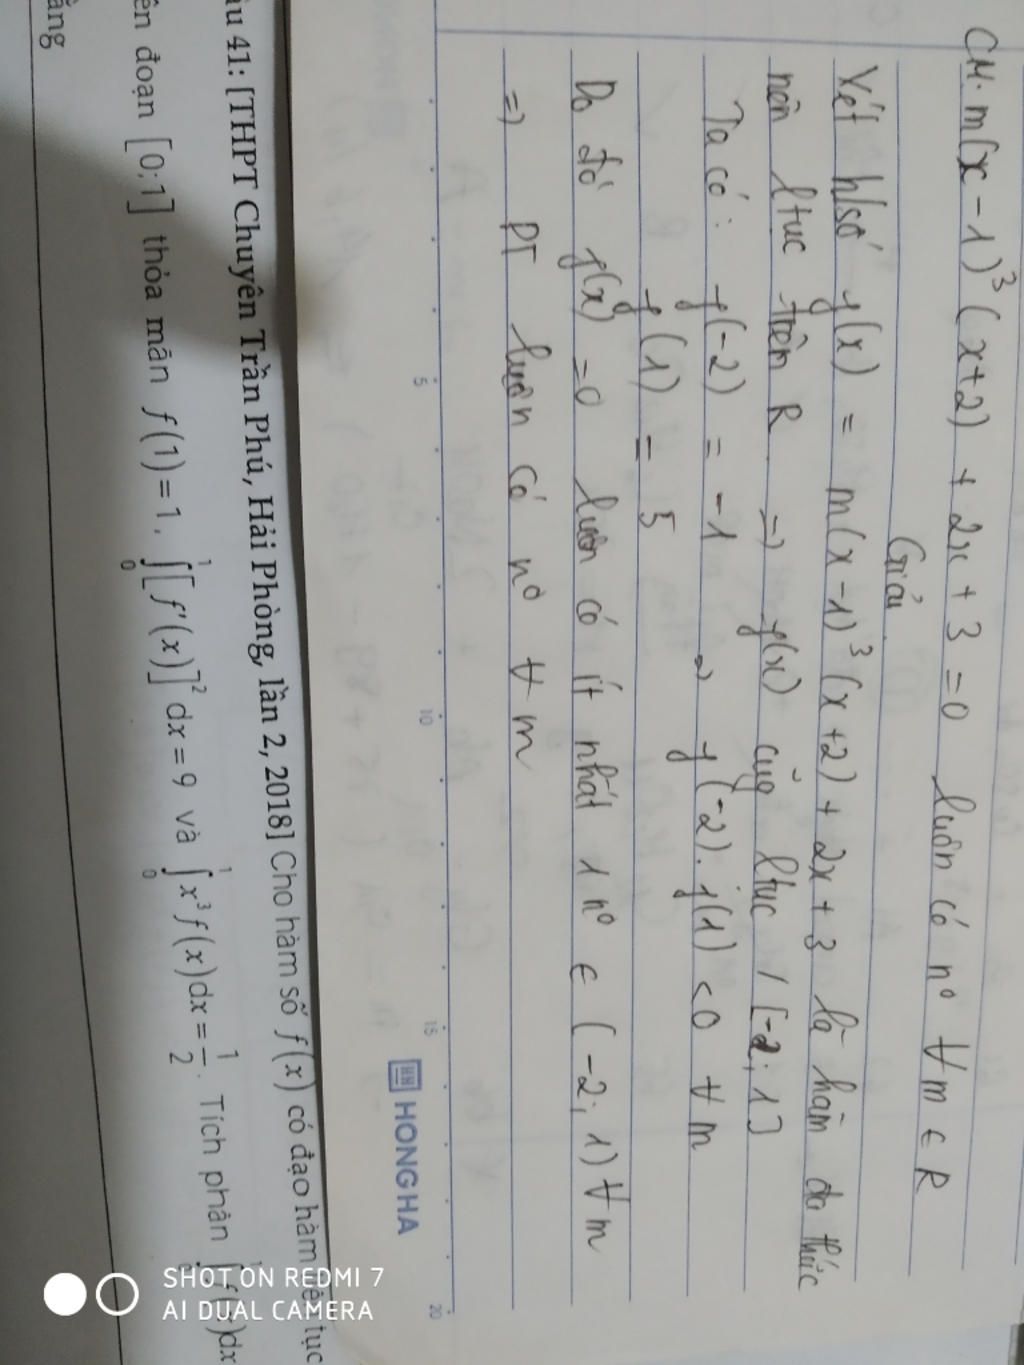 CM. m(x - 1)³ (x+2) + 2x + 3 = 0 luôn có n⁰ ∀m ∈ R
Giải
Xét h/số f(x) = m(x -1)³ (x +2) + 2x + 3 là hàm đa thức
nên ltuc trên R => f(x) cũg ltuc / [-2; 1]
Ta có: f(-2) = -1 => f(-2). f(1) < 0 ∀ m
f(1) = 5
Do đó f(x) = 0 luôn có ít nhất 1 n⁰ ∈ (-2; 1) ∀ m
=> PT luôn có n⁰ ∀ m
5 10 15 20
HH HONG HA
u 41: [THPT Chuyên Trần Phú, Hải Phòng, lần 2, 2018] Cho hàm số f(x) có đạo hàm liên tục
ên đoạn [0;1] thỏa mãn f(1) = 1, ∫₀¹[f'(x)]² dx = 9 và ∫₀¹ x³ f(x)dx = 1/2. Tích phân ∫₀¹ f(x)dx
ằng
SHOT ON REDMI 7
AI DUAL CAMERA